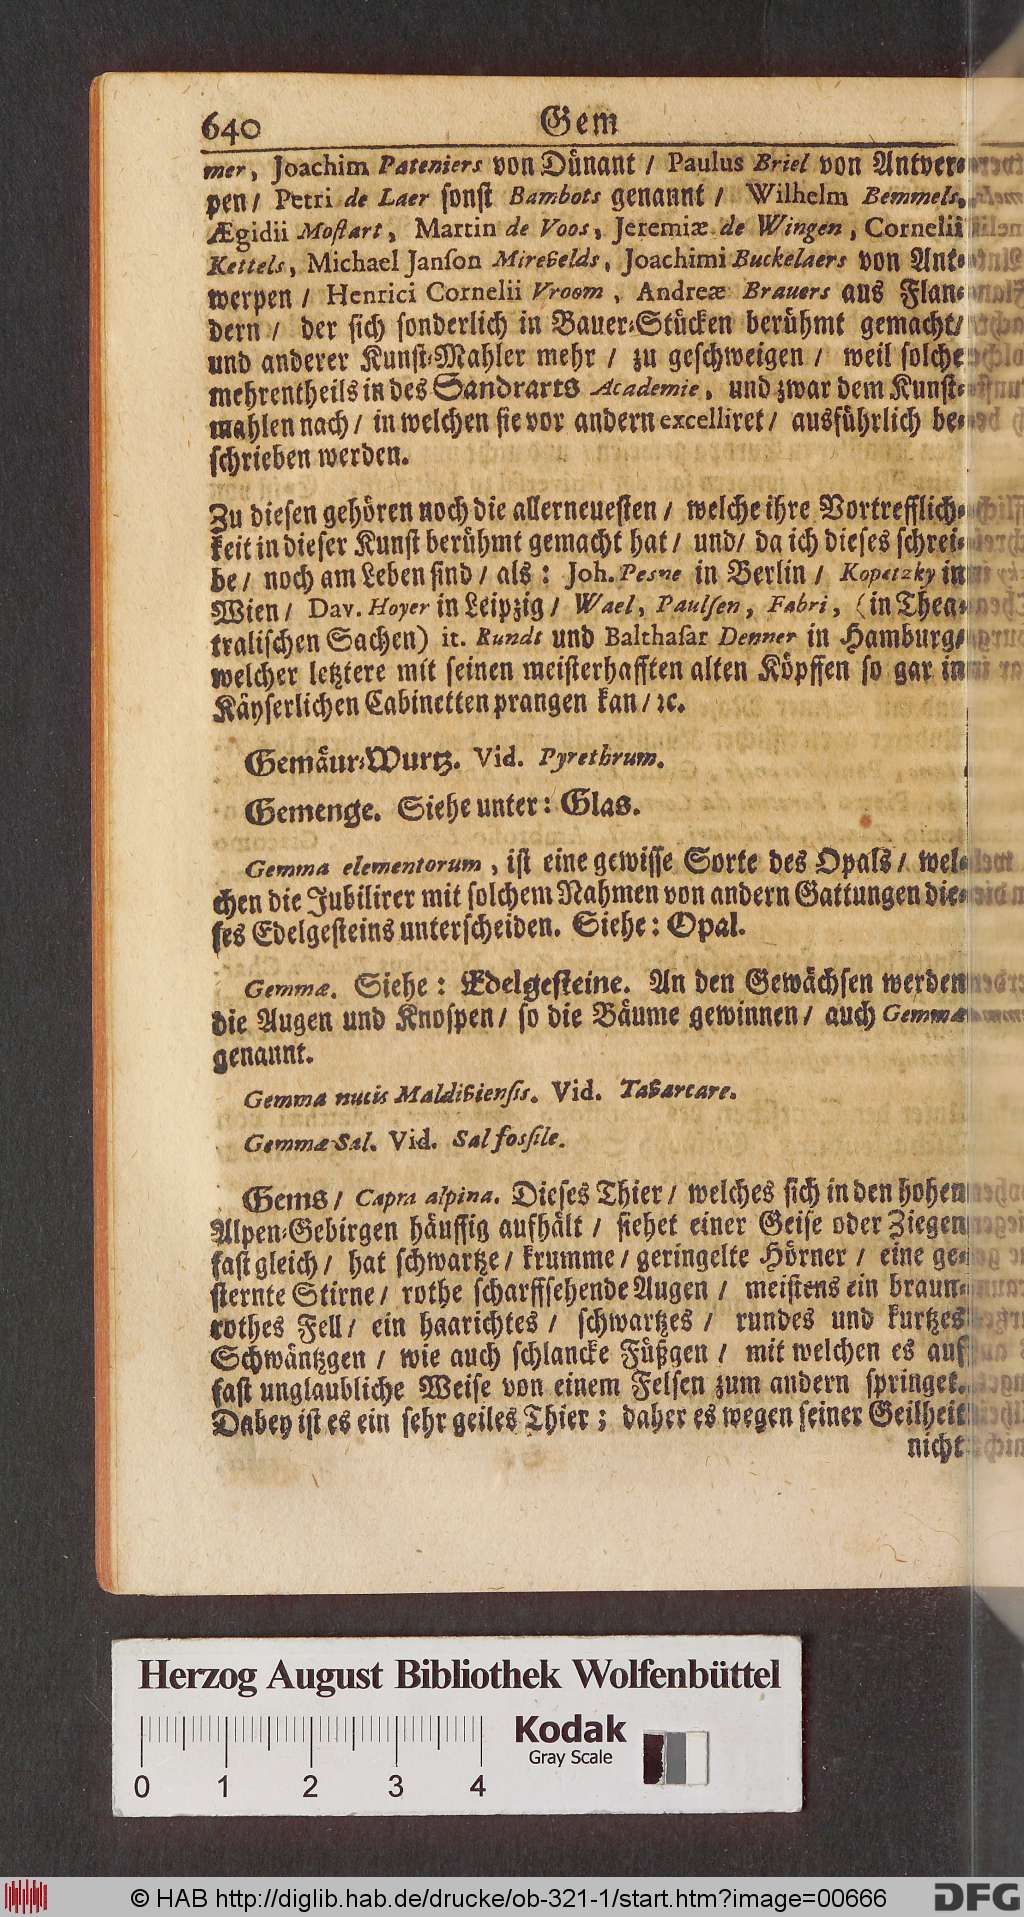 640 Gem
mer, Joachim Pateniers von Dünant / Paulus Briel von Antver-
pen / Petri de Laer sonst Bambots genannt / Wilhelm Bemmels,
Ægidii Mostart, Martin de Voos, Jeremiæ de Wingen, Cornelii
Kettels, Michael Janson Mirevelds, Joachimi Buckelaers von Ant-
werpen / Henrici Cornelii Vroom, Andreæ Brauers aus Flan-
dern / der sich sonderlich in Bauer-Stücken berühmt gemacht /
und anderer Kunst-Mahler mehr / zu geschweigen / weil solche
mehrentheils in des Sandrarts Academie, und zwar dem Kunst-
mahlen nach / in welchen sie vor andern excelliret / ausführlich be-
schrieben werden.
Zu diesen gehören noch die allerneuesten / welche ihre Vortrefflich-
keit in dieser Kunst berühmt gemacht hat / und / da ich dieses schrei-
be / noch am Leben sind / als: Joh. Pesne in Berlin / Kopetzky in
Wien / Dav. Hoyer in Leipzig / Wael, Paulsen, Fabri, (in Thea-
tralischen Sachen) it. Rundt und Balthasar Denner in Hamburg /
welcher letztere mit seinen meisterhafften alten Köpffen so gar in
Käyserlichen Cabinetten prangen kan / ꝛc.
Gemäur-Wurtz. Vid. Pyrethrum.
Gemenge. Siehe unter: Glas.
Gemma elementorum, ist eine gewisse Sorte des Opals / wel-
chen die Jubilirer mit solchem Nahmen von andern Gattungen die-
ses Edelgesteins unterscheiden. Siehe: Opal.
Gemmæ. Siehe: Edelgesteine. An den Gewächsen werden
die Augen und Knospen / so die Bäume gewinnen / auch Gemmæ
genannt.
Gemma nucis Maldiviensis. Vid. Tavarcare.
Gemmæ-Sal. Vid. Sal fossile.
Gems / Capra alpina. Dieses Thier / welches sich in den hohen
Alpen-Gebirgen häuffig aufhält / siehet einer Geise oder Ziegen
fast gleich / hat schwartze / krumme / geringelte Hörner / eine ge-
sternte Stirne / rothe scharffsehende Augen / meistens ein braun-
rothes Fell / ein haarichtes / schwartzes / rundes und kurtzes
Schwäntzgen / wie auch schlancke Füßgen / mit welchen es auf
fast unglaubliche Weise von einem Felsen zum andern springet.
Dabey ist es ein sehr geiles Thier; daher es wegen seiner Geilheit
nicht
Herzog August Bibliothek Wolfenbüttel
Kodak
Gray Scale
0 1 2 3 4
© HAB http://diglib.hab.de/drucke/ob-321-1/start.htm?image=00666
DFG